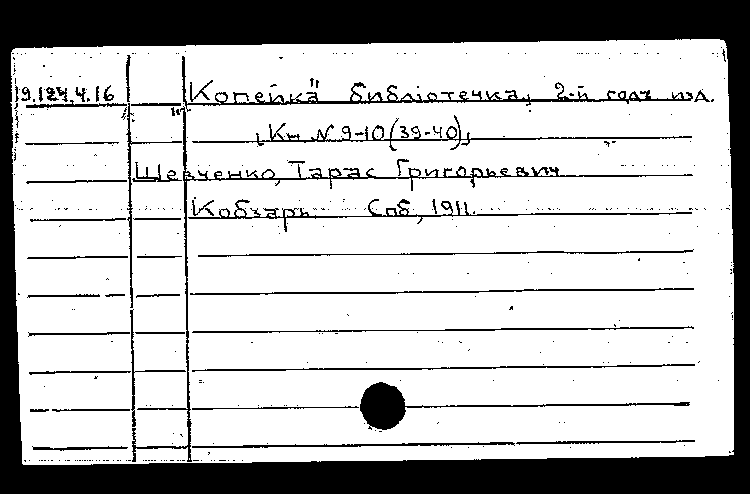 9.124.4.16 Копейка" библіотечка, 2-й годъ изд.
Кн N 9-10 (39-40),
Шевченко, Тарас Григорьевич
Кобзарь Спб, 1911.